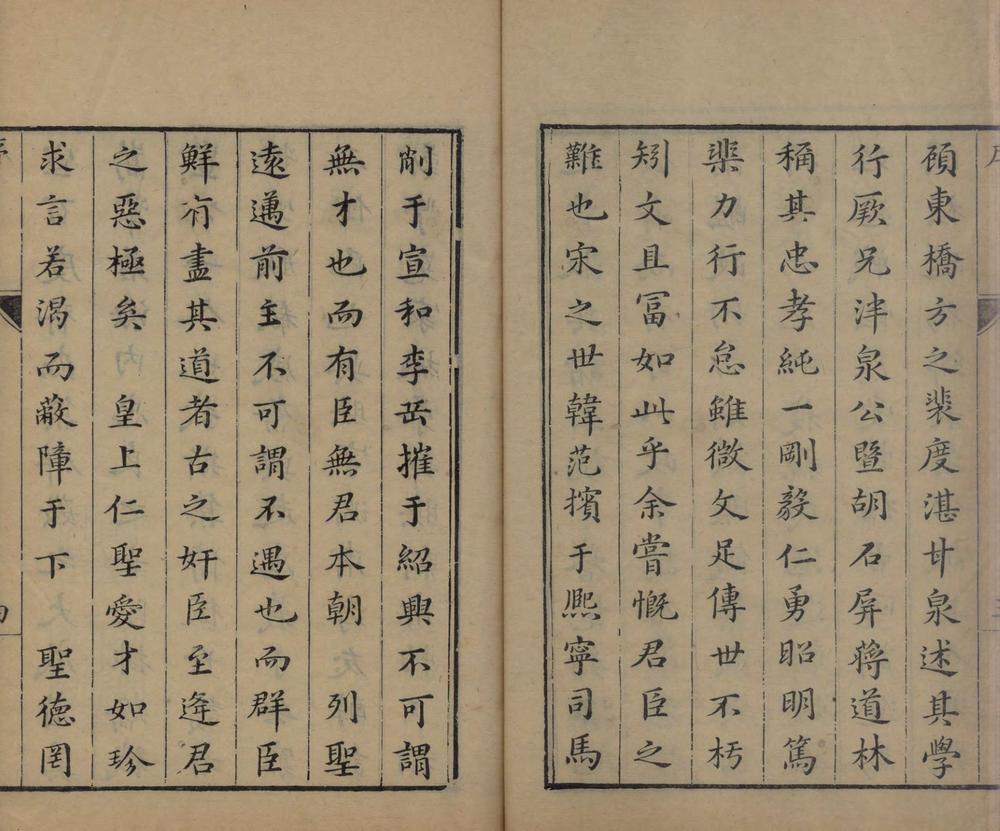 頋東橋方之裴度湛甘泉述其學
行厥兄泮泉公暨胡石屏蔣道林
稱其忠孝純一剛毅仁勇昭明篤
棐力行不怠雖微文足傳世不朽
矧文且冨如此乎余嘗慨君臣之
難也宋之世韓范擯于熈寧司馬
削于宣和李岳摧于紹興不可謂
無才也而有臣無君本朝列聖
遠邁前主不可謂不遇也而群臣
鮮有盡其道者古之奸臣至逄君
之惡極矣皇上仁聖愛才如珍
求言若渴而蔽障于下聖德罔